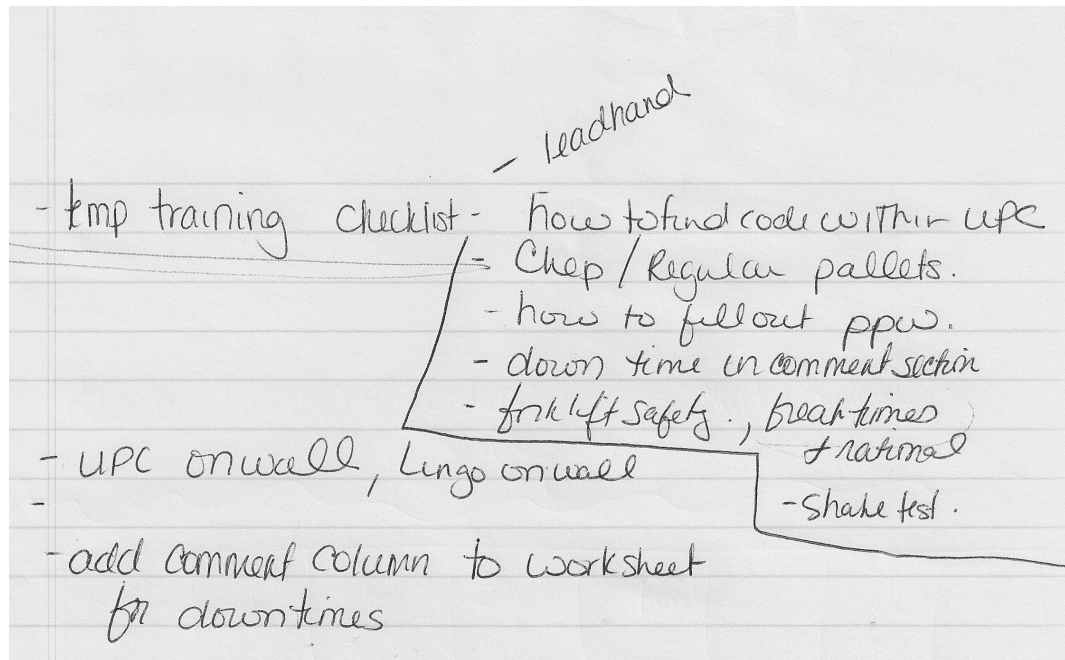 - leadhand
- temp training checklist - how to find code within UPC
- Chep / Regular pallets.
- how to fill out ppw.
- down time in comment section
- forklift safety., break times
+ rational
- UPC on wall, Lingo on wall
- shake test.
-
- add comment column to worksheet
for downtimes